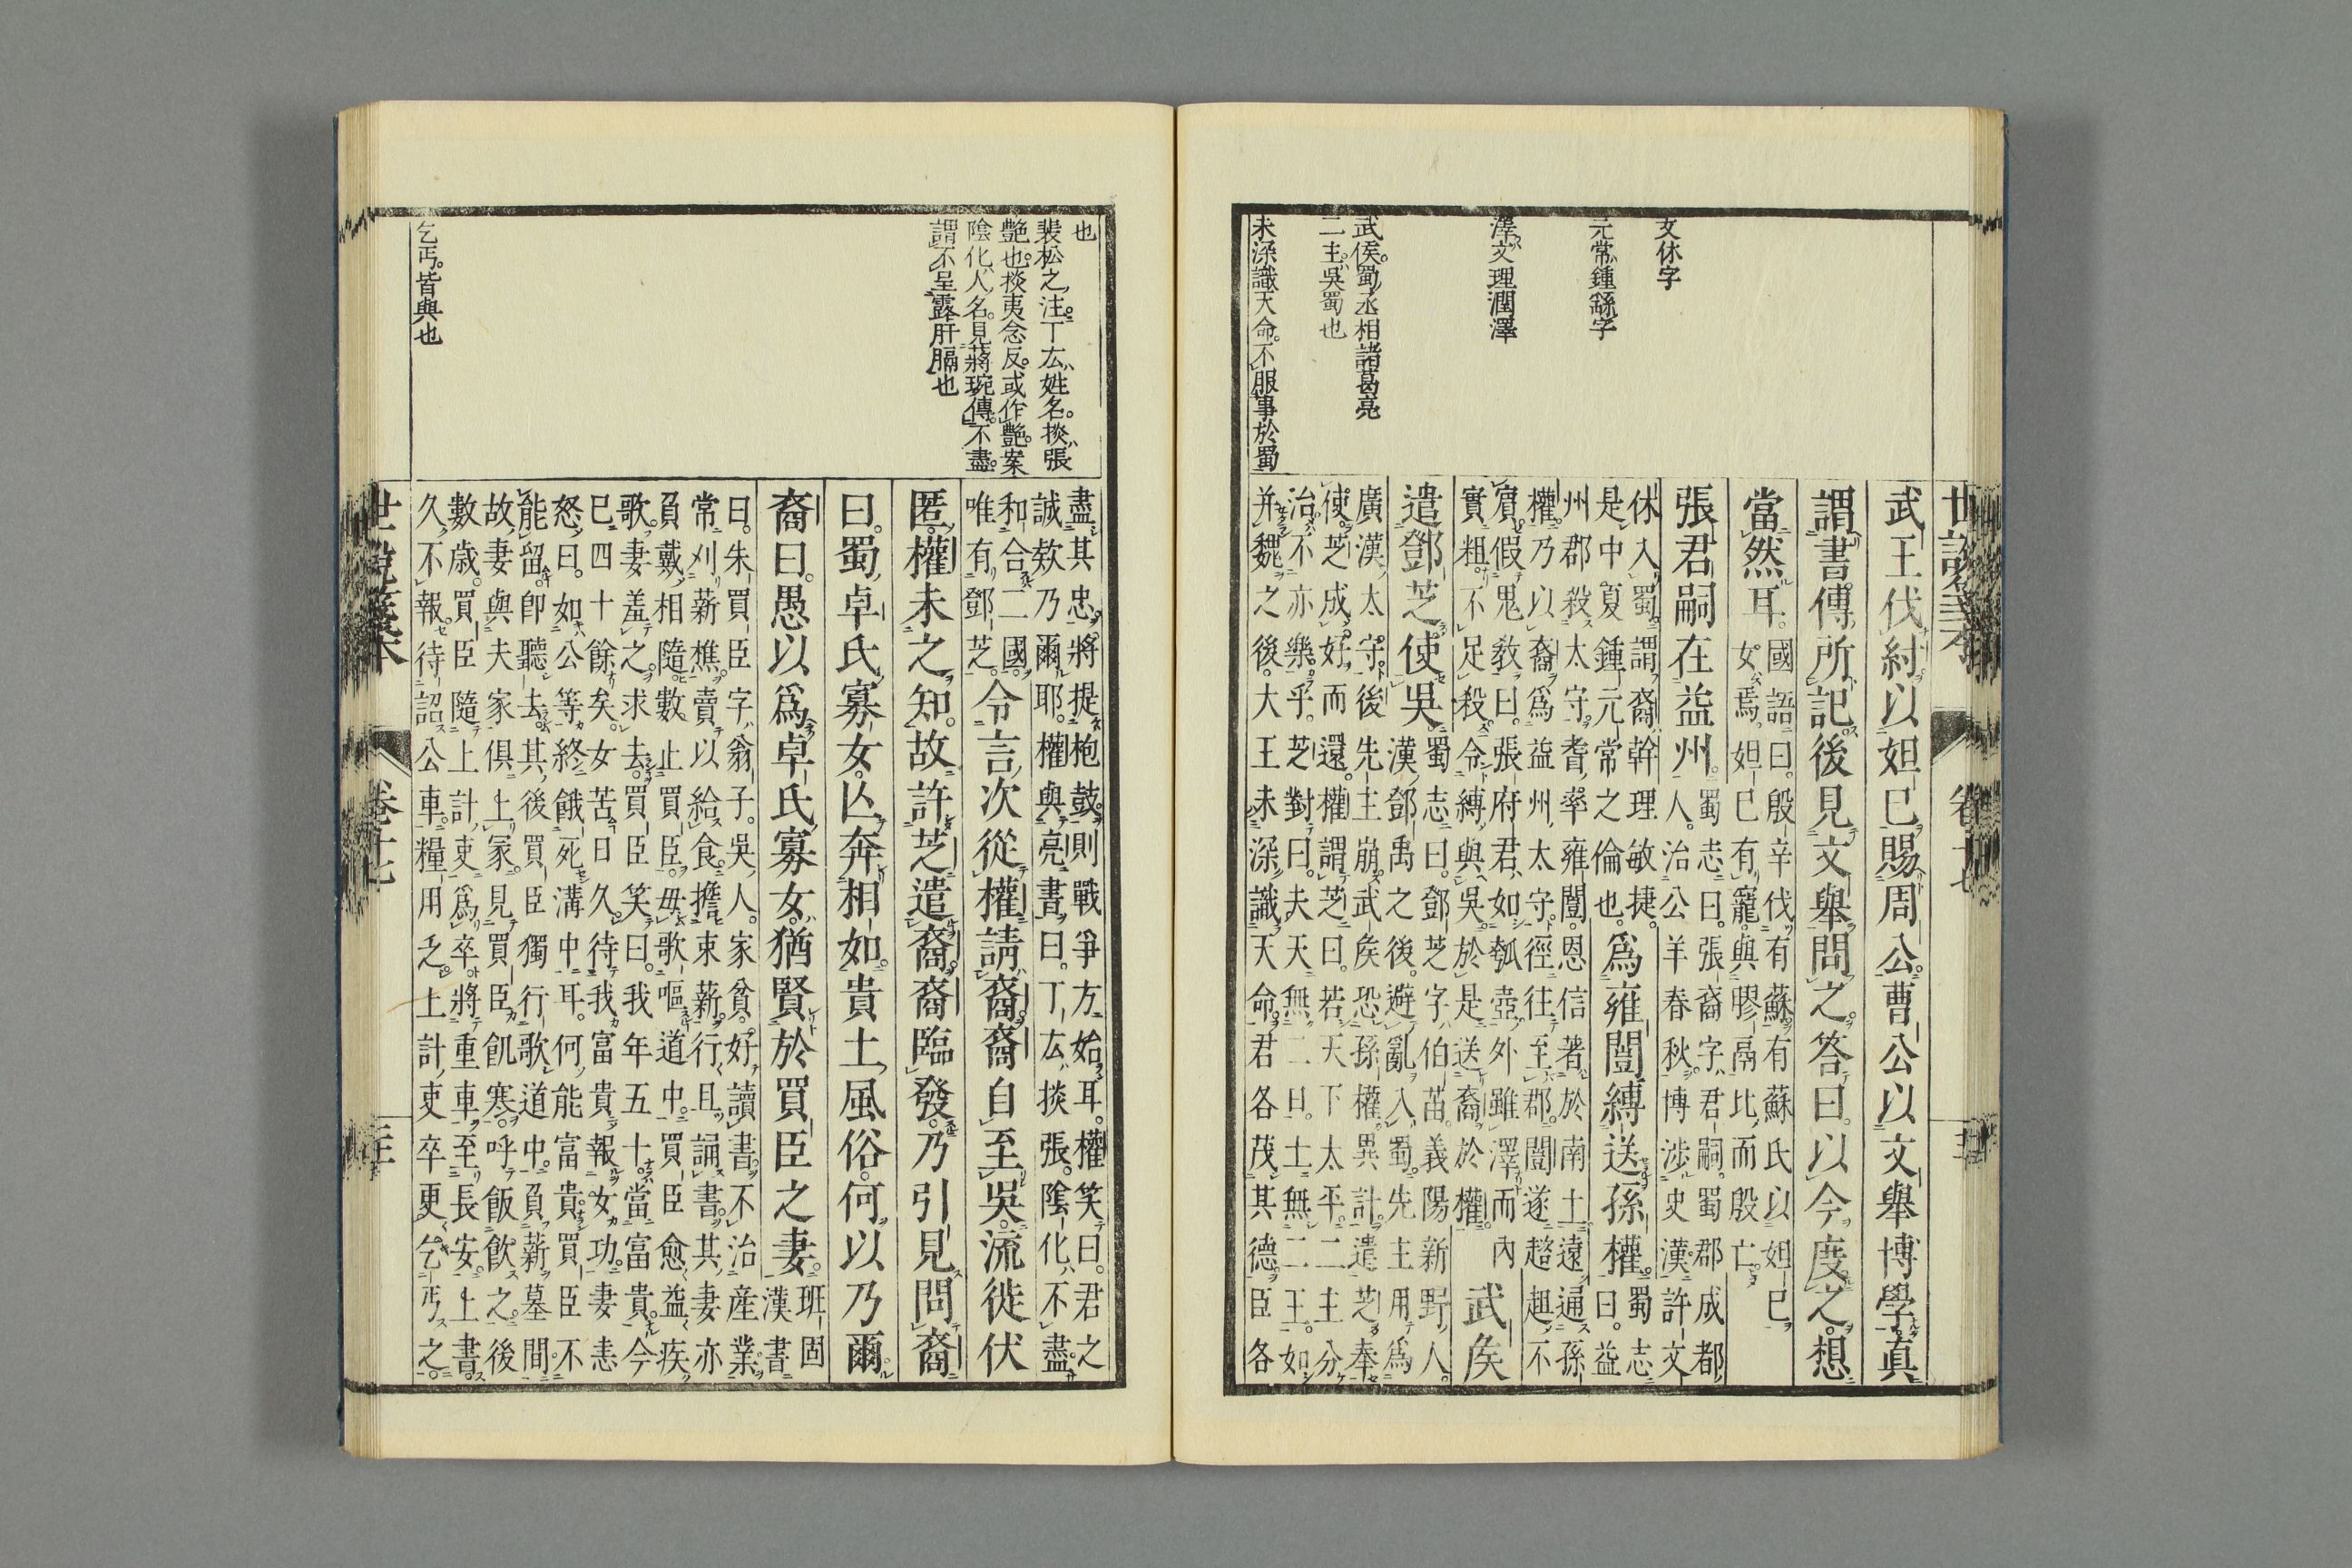 世說箋本 卷十七
文休字
元常鍾繇字
澤文理潤澤
武侯蜀丞相諸葛亮
二主吳蜀也
未深識天命不服事於蜀
武王伐紂以妲已賜周公曹公以文舉博學真
謂書傳所記後見文舉問之答曰以今度之想
當然耳
國語曰殷辛伐有蘇有蘇氏以妲已
女焉妲已有寵與膠鬲比而殷亡
張君嗣在益州
蜀志曰張裔字君嗣蜀郡成都
人治公羊春秋博涉史漢許文
休入蜀謂裔幹理敏捷
是中夏鍾元常之倫也
爲雍闓縛送孫權
蜀志
曰益
州郡殺太守耆率雍闓恩信著於南土遠通孫
權乃以裔爲益州太守徑往至郡闓遂趦趄不
賓假鬼敎曰張府君如瓠壺外雖澤而內
實粗不足殺令縛與吳於是送裔於權
武侯
遣鄧芝使吳
蜀志曰鄧芝字伯苗義陽新野人
漢鄧禹之後避亂入蜀先主用爲
廣漢太守後先主崩武侯恐孫權異計遣芝奉
使芝成好而還權謂芝曰若天下太平二主分
治不亦樂乎芝對曰夫天無二日土無二王如
并魏之後大王未深識天命君各茂其德臣各
也
裴松之注丁厷姓名掞張
艷也掞夷念反或作艷案
陰化人名見蔣琬傳不盡
謂不呈露肝膈也
乞丐皆與也
盡其忠將提枹鼓則戰爭方始耳權笑曰君之
誠欵乃爾耶權與亮書曰丁厷掞張陰化不盡
和合二國
唯有鄧芝
令言次從權請裔裔自至吳流徙伏
匿權未之知故許芝遣裔裔臨發乃引見問裔
曰蜀卓氏寡女亾奔相如貴土風俗何以乃爾
裔曰愚以爲卓氏寡女猶賢於買臣之妻
班固
漢書
曰朱買臣字翁子吳人家貧好讀書不治產業
常刈薪樵賣以給食擔束薪行且誦書其妻亦
負戴相隨數止買臣毋歌嘔道中買臣愈益疾
歌妻羞之求去買臣笑曰我年五十當富貴今
已四十餘矣女苦日久待我富貴報女功妻恚
怒曰如公等終餓死溝中耳何能富貴買臣不
能留卽聽去其後買臣獨行歌道中負薪墓間
故妻與夫家俱上冢見買臣飢寒呼飯飲之後
數歲買臣隨上計吏爲卒將重車至長安上書
久不報待詔公車糧用乏上計吏卒更乞丐之
世說箋本 卷十七